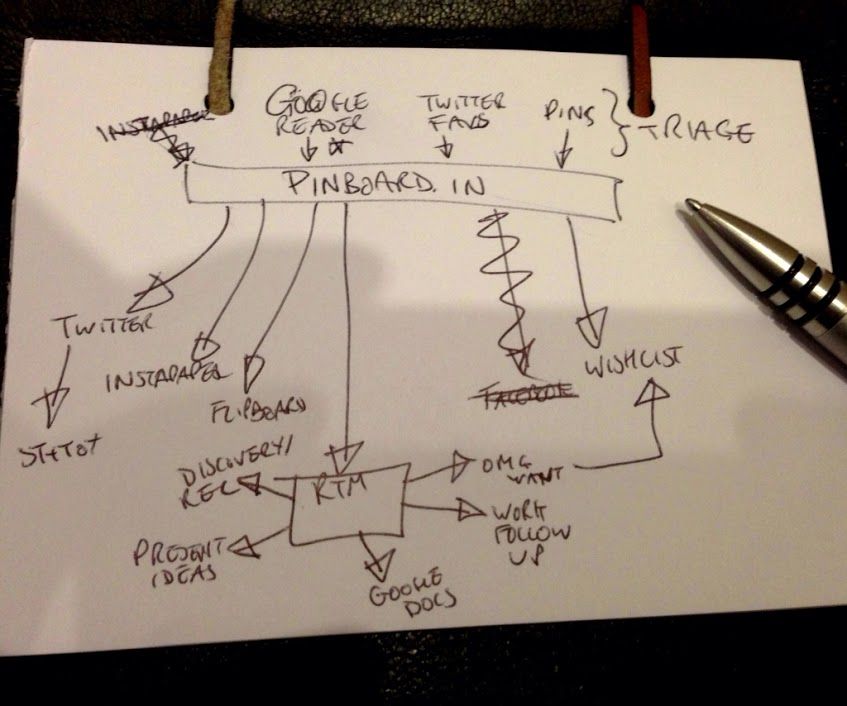 INSTAPAPER
GOOGLE
READER
TWITTER
FAVS
PINS
TRIAGE
PINBOARD.IN
TWITTER
INSTAPAPER
FLIPBOARD
FACEBOOK
WISHLIST
DISCOVERY/
REC
RTM
OMG
WANT
WORK
FOLLOW
UP
PRESENT
IDEAS
GOOGLE
DOCS